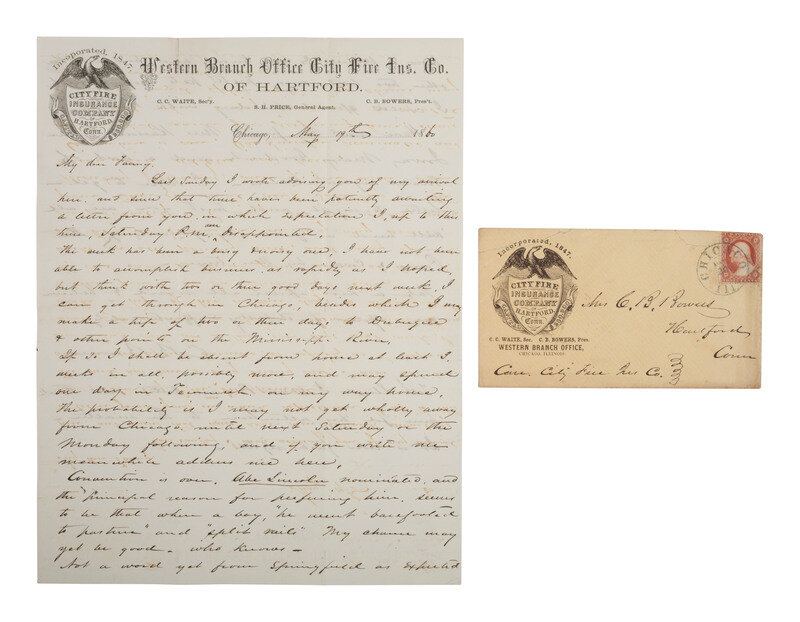 Incorporated, 1847.
CITY FIRE
INSURANCE
COMPANY
OF
HARTFORD,
Conn.
CAPITAL
Western Branch Office City Fire Ins. Co.
OF HARTFORD.
C. C. WAITE, Sec'y.
C. B. BOWERS, Pres't.
S. H. PRICE, General Agent.
Chicago, May 19th 1860
My dear Fanny.
Last Sunday I wrote advising you of my arrival
here. and since that time have been patiently awaiting
a letter from you. in which expectation I, up to this
time, Saturday P.M. am Disappointed.
The week has been a busy & noisy one. I have not been
able to accomplish business as rapidly as I hoped,
but think with two or three good days next week, I
can get through in Chicago, besides which I may
make a trip of two or three days to Dubuque
& other points on the Mississippi River,
If so I shall be absent from home at least 3
weeks in all, possibly more, and may spend
one day in on my way home,
The probability is I may not get wholly away
from Chicago until next Saturday or the
Monday following, and if you write me
meanwhile address me here,
Convention is over, Abe Lincoln nominated, and
the principal reason for preferring him, seems
to be that when a boy, "he went barefooted
to pasture" and "split rails" My chance may
yet be good - who knows -
Not a word yet from Springfield as expected
Incorporated, 1847.
CITY FIRE
INSURANCE
COMPANY
OF
HARTFORD,
Conn.
CAPITAL
C. C. WAITE, Sec. C. B. BOWERS, Pres.
WESTERN BRANCH OFFICE,
CHICAGO, ILLINOIS.
CHICAGO
Mrs C. B. Bowers
Hartford
Conn
Care, City Fire Ins Co.